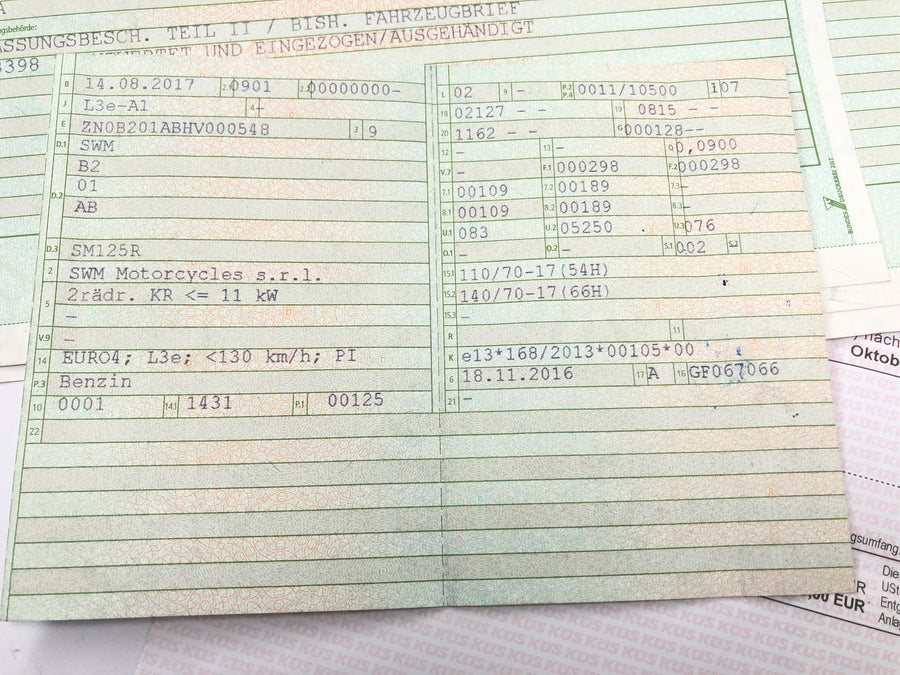 A
gsbehörde:
ASSUNGSBESCH. TEIL II / BISH. FAHRZEUGBRIEF
UND EINGEZOGEN/AUSGEHÄNDIGT
3398
B 14.08.2017 2.1 0901 2.2 00000000-
J L3e-A1 4 -
E ZN0B201ABHV000548 3 9
D.1 SWM
D.2 B2
01
AB
D.3 SM125R
2 SWM Motorcycles s.r.l.
5 2rädr. KR <= 11 kW
-
V.9 -
14 EURO4; L3e; <130 km/h; PI
P.3 Benzin
10 0001 14.1 1431 P.1 00125
22
L 02 9 - P.2 P.4 0011/10500 T 107
18 02127 - - 19 0815 - -
20 1162 - - G 000128--
12 - 13 - Q 0,0900
V.7 - F.1 000298 F.2 000298
7.1 00109 7.2 00189 7.3 -
8.1 00109 8.2 00189 8.3 -
U.1 083 U.2 05250 U.3 076
O.1 - O.2 - S.1 002 S.2
15.1 110/70-17(54H)
15.2 140/70-17(66H)
15.3 -
R 11
K e13*168/2013*00105*00
6 18.11.2016 17 A 16 GF067066
21 -
BUNDESDRUCKEREI
nach
Oktob
gsumfang
Die
USt
Entg
Anla
00 EUR
KÜS KÜS KÜS KÜS KÜS KÜS